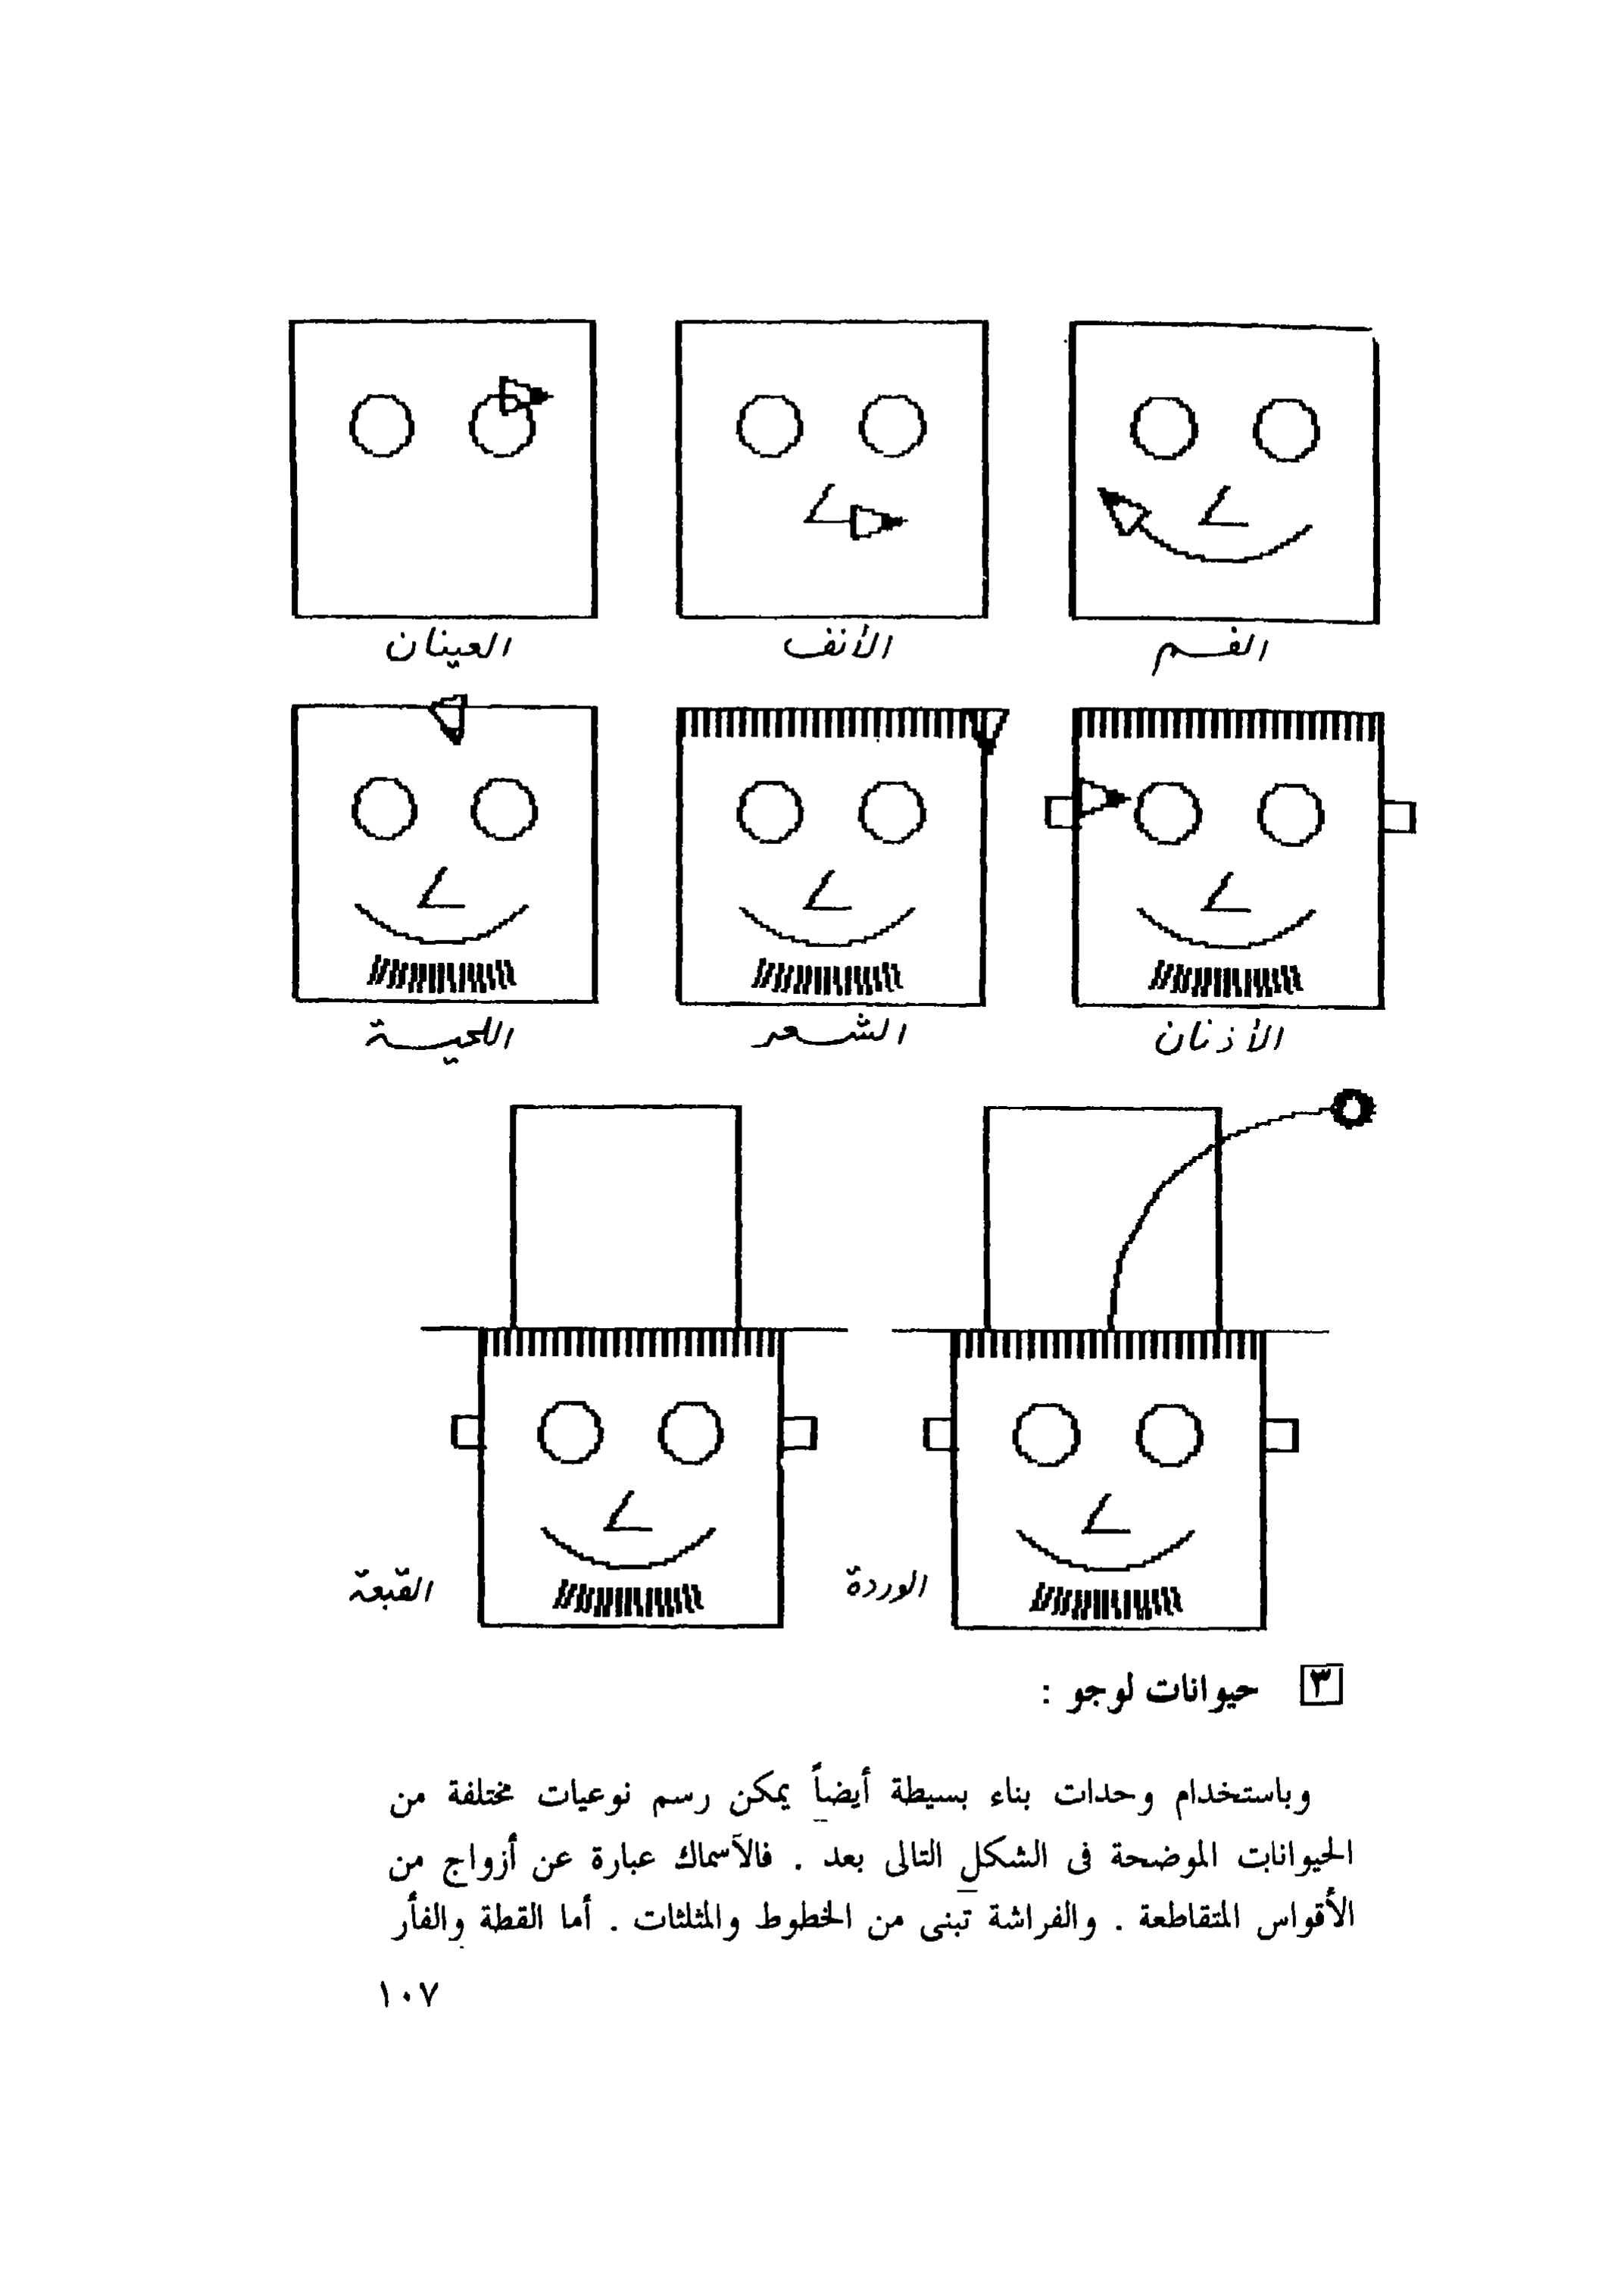 العينان
الأنف
الفم
اللحية
الشعر
الأذنان
القبعة
الوردة
٣ حيوانات لوجو :
وباستخدام وحدات بناء بسيطة أيضاً يمكن رسم نوعيات مختلفة من
الحيوانات الموضحة فى الشكل التالى بعد . فالآسماك عبارة عن أزواج من
الأقواس المتقاطعة . والفراشة تبنى من الخطوط والمثلثات . أما القطة والفأر
١٠٧